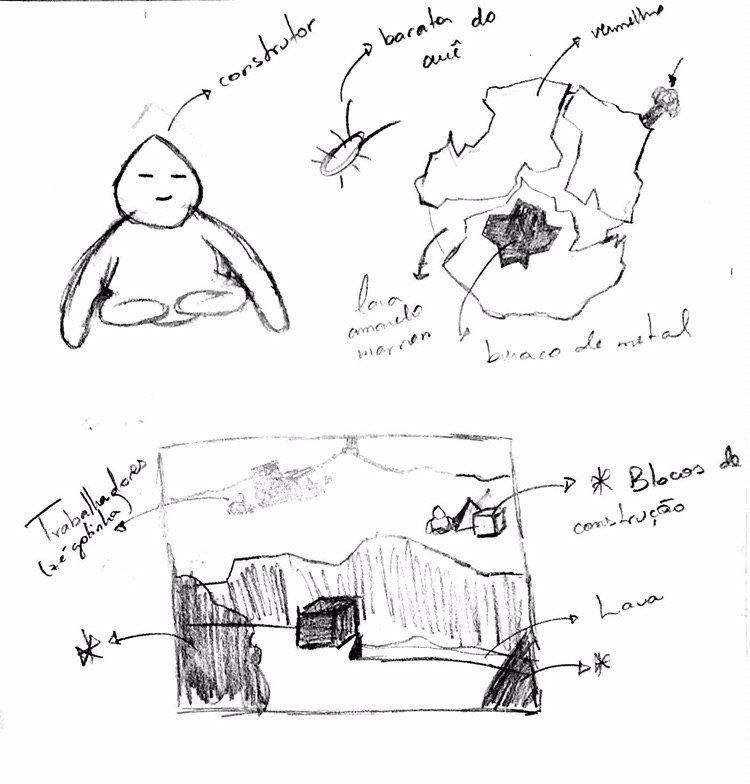 construtor
barata do
auê
vermelho
lava
amarelo
marrom
buraco de metal
Trabalhadores
(zé gotinha)
* Blocos de
construção
Lava
*
*